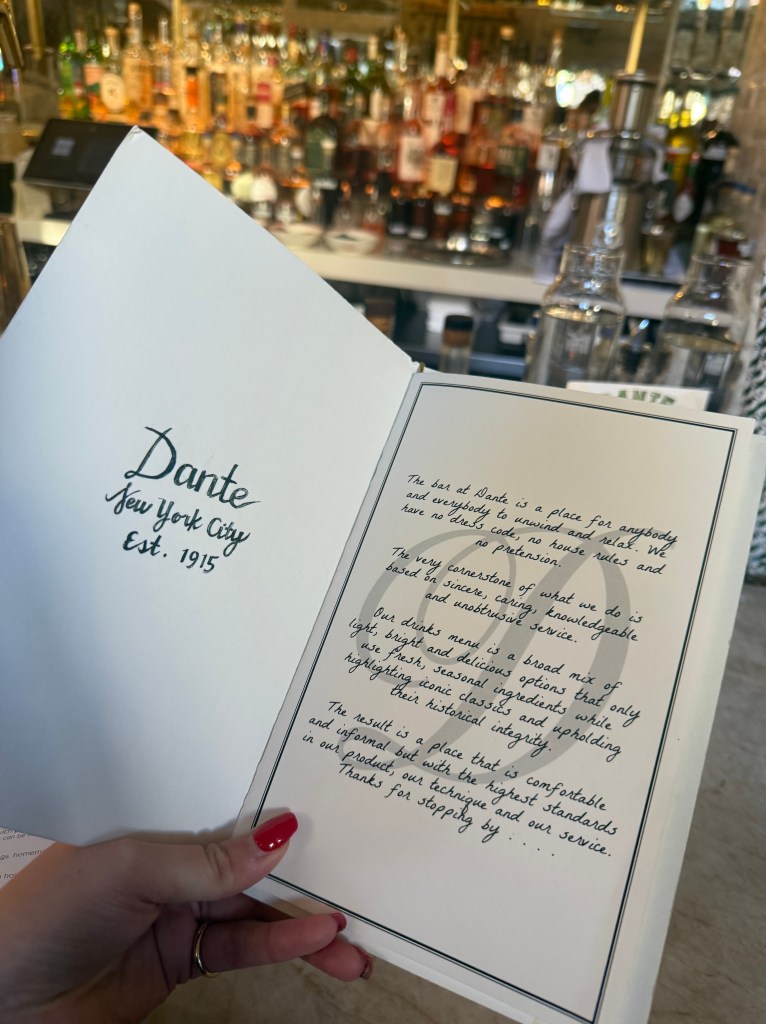 Dante
New York City
Est. 1915
The bar at Dante is a place for anybody
and everybody to unwind and relax. We
have no dress code, no house rules and
no pretension.
The very cornerstone of what we do is
based on sincere, caring, knowledgeable
and unobtrusive service.
Our drinks menu is a broad mix of
light, bright and delicious options that only
use fresh, seasonal ingredients while
highlighting iconic classics and upholding
their historical integrity.
The result is a place that is comfortable
and informal but with the highest standards
in our product, our technique and our service.
Thanks for stopping by . . . . .
D